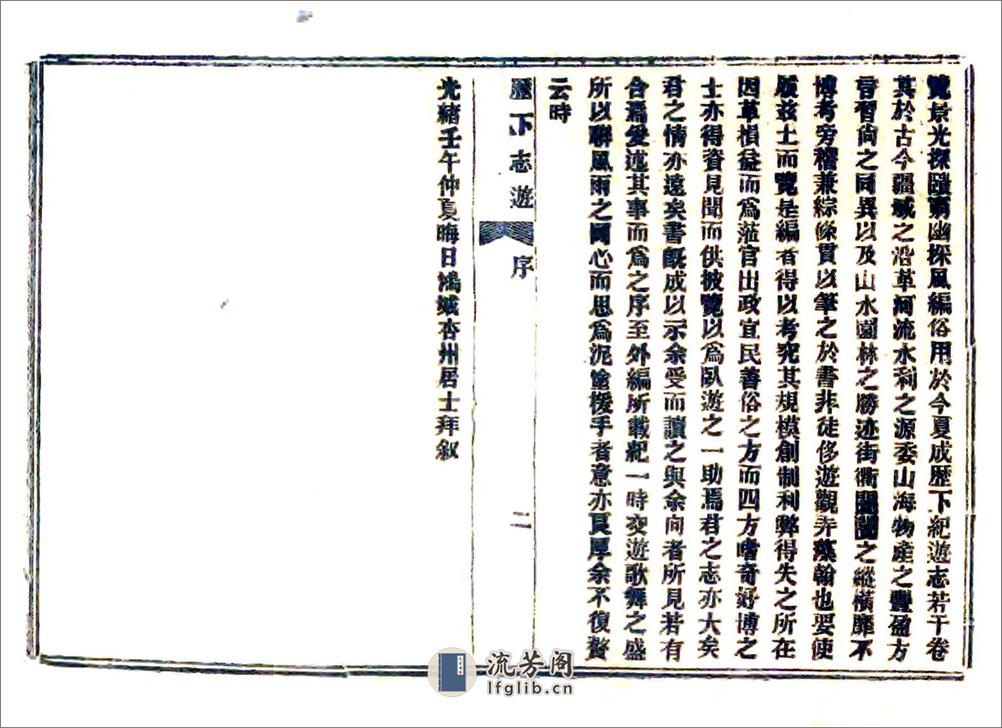 覽景光探賾窮幽探風編俗用於今夏成歷下紀遊志若干卷
其於古今疆域之沿革河流水利之源委山海物產之豐盈方
言習尚之同異以及山水園林之勝迹街衢闤闠之縱橫靡不
博考旁稽兼綜條貫以筆之於書非徒侈遊觀弄藻翰也要使
履茲土而覽是編者得以考究其規模創制利弊得失之所在
因革損益而爲蒞官出政宜民善俗之方而四方嗜奇好博之
士亦得資見聞而供披覽以爲臥遊之一助焉君之志亦大矣
君之情亦遠矣書旣成以示余受而讀之與余向者所見若有
合焉爰述其事而爲之序至外編所載紀一時交遊歌舞之盛
所以聯風雨之同心而思爲泥塗援手者意亦良厚余不復贅
云時
歷下志遊 序 二
光緒壬午仲夏晦日鴻城杏州居士拜敘
流芳阁
lfglib.cn